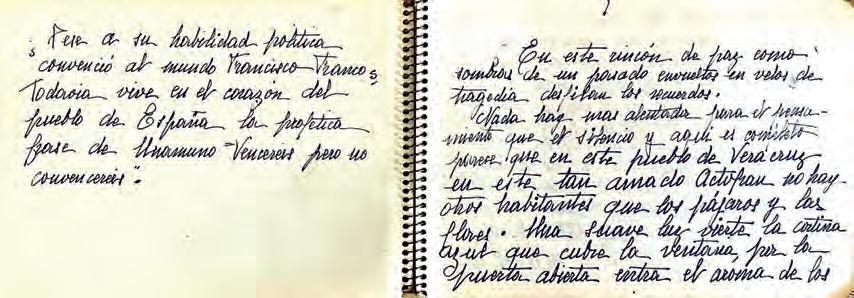 ¿Pese a su habilidad política
convenció al mundo Francisco Franco?
Todavia vive en el corazón del
pueblo de España la profetica
frase de Unamuno "Vencereis pero no
convencereis".
En este rincón de paz como
sombras de un pasado envueltos en velos de
tragedia desfilan los recuerdos.
Nada hay mas alentada para el pensa-
miento que el silencio y aqui es completo
parese que en este pueblo de Verácruz
en este tan amado Actopan no hay
otros habitantes que los pájaros y las
flores. Una suave luz vierte la cortina
azul que cubre la ventana, por la
puerta abierta entra el aroma de los